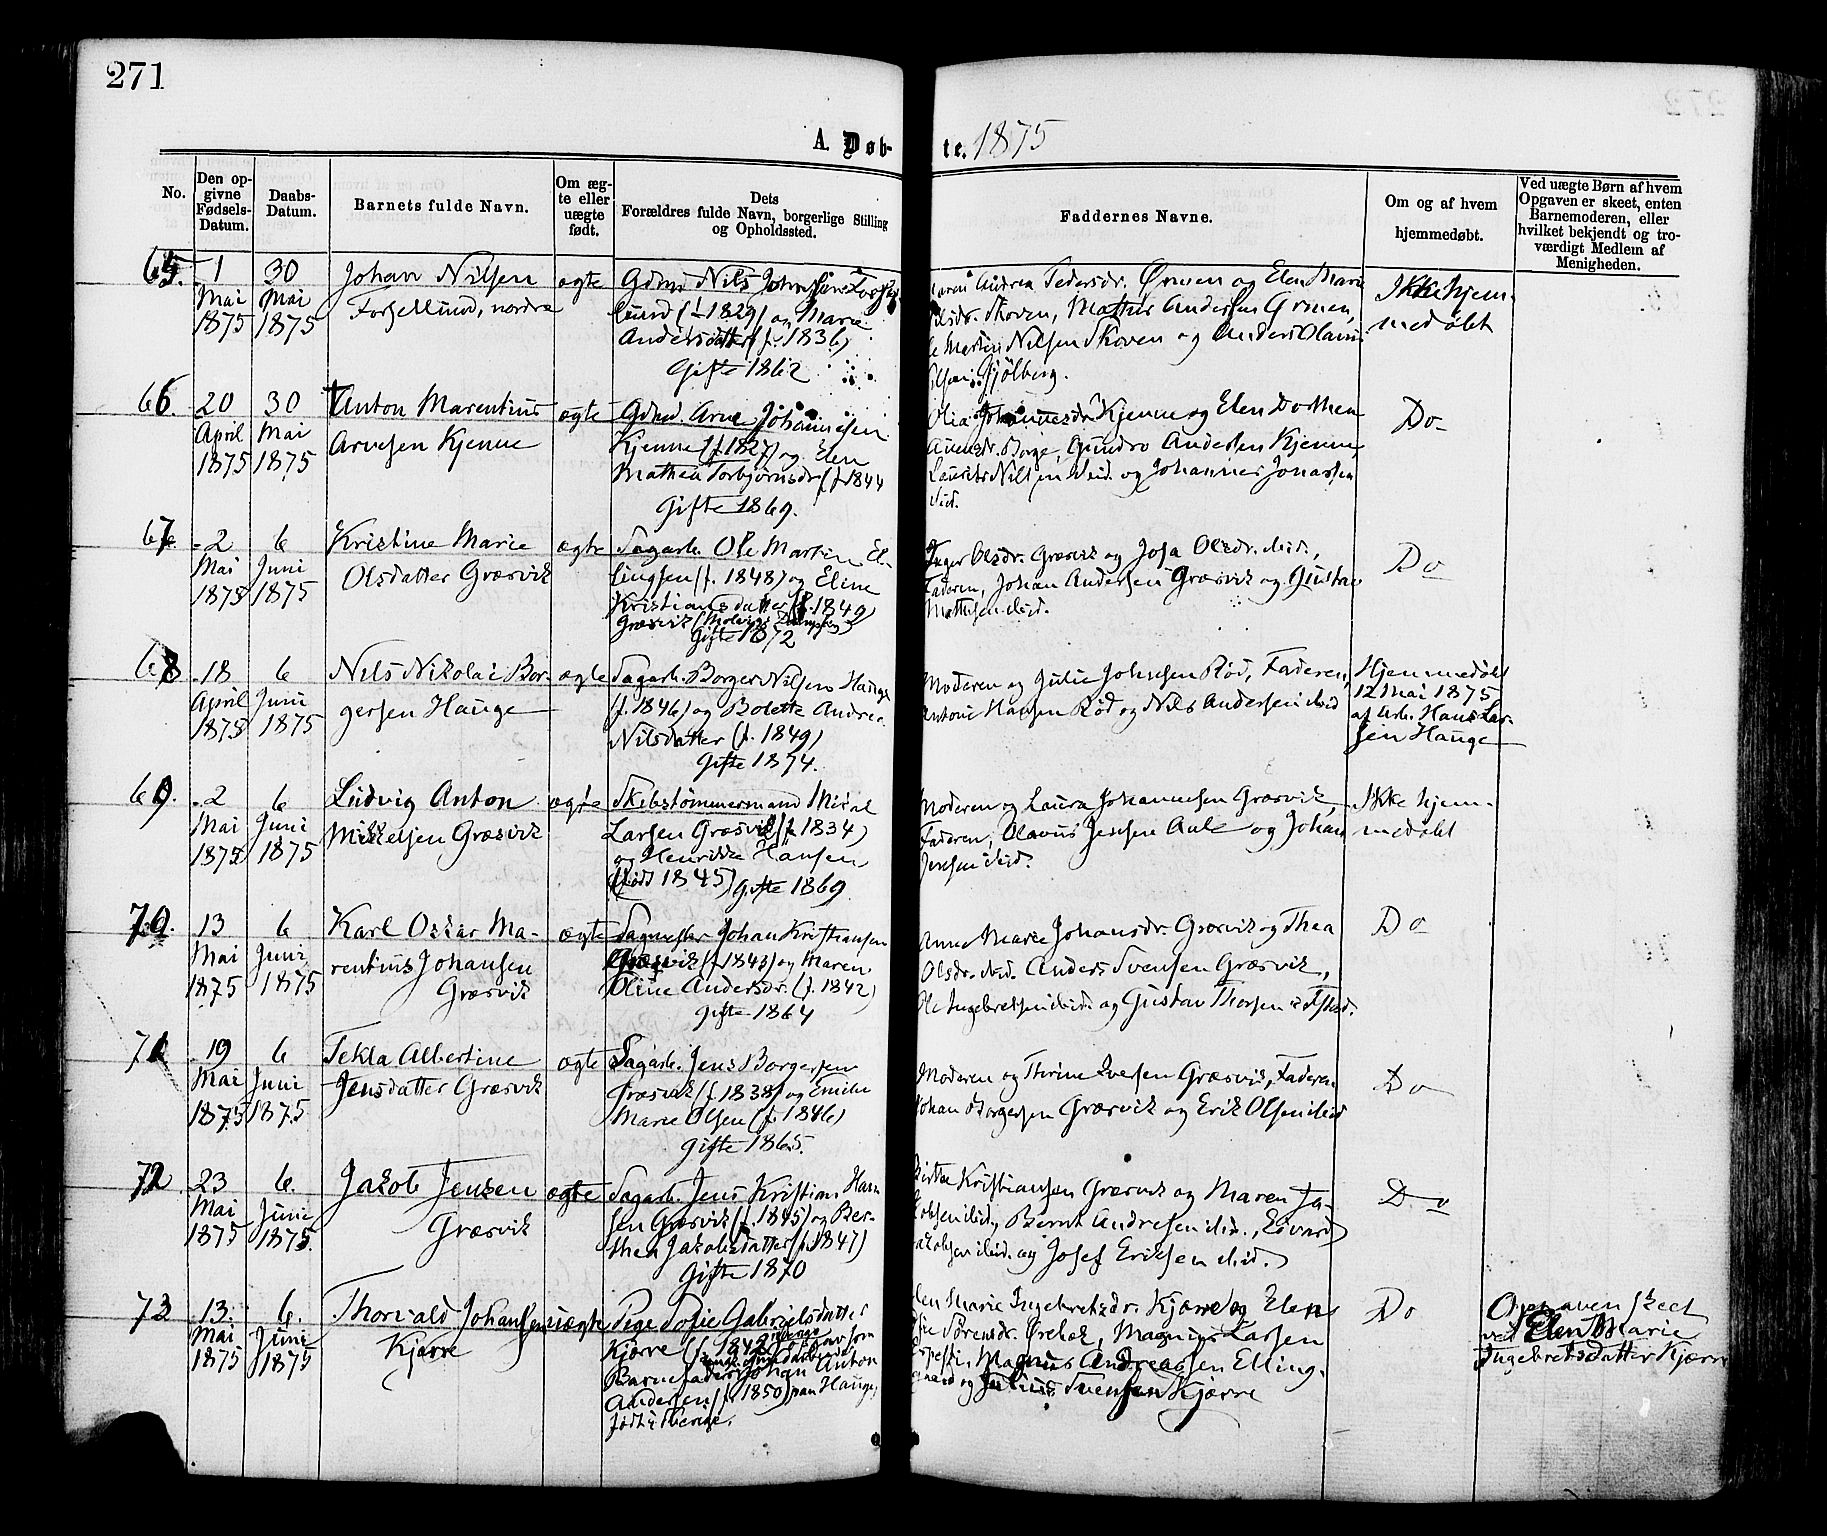 271
A. Døb-
te. 1875
No.
Den op-
givne
Fødsels-
Datum.
Daabs-
Datum.
Barnets fulde Navn.
Om æg-
te eller
uægte
født.
Dets
Forældres fulde Navn, borgerlige Stilling
og Opholdssted.
Faddernes Navne.
Om og af hvem
hjemmedøbt.
Ved uægte Børn af hvem
Opgaven er skeet, enten
Barnemoderen, eller
hvilket bekjendt og tro-
værdigt Medlem af
Menigheden.
65.
1
Mai
1875
30
Mai
1875
Johan Nilsen
Torgellund, nordre
ægte
Gdmd Nils
lund (f. 1829) og Marie
Andersdatter (f. 1836)
Gifte 1862
Andrea Pedersdr. Ørmen og Elen Marie
Skoven, Mathias Andersen Ørmen,
Martin Nilsen Skoven og Anders Olaus
Gjølberg.
Ikke hjem-
medøbt
66.
20
April
1875
30
Mai
1875
Anton Marentius
Arnesen Kjenne
ægte
Gdmd. Arne Johannesen
Kjenne (f. 1827) og Elen
Mathea Torbjørnsdr. (f. 1844
Gifte 1869.
Olia Johannesdr. Kjenne og Elen Dorthea
Borge, Gundro Andersen Kjenne,
Laurits Nilsen ibid. og Johannes Jonassen
ibid.
Do
67.
2
Mai
1875
6
Juni
1875
Kristine Marie
Olsdatter Græsvik
ægte
Sagarb. Ole Martin El-
lingsen (f. 1848) og Eline
Kristiansdatter (f. 1849)
Græsvik
Gifte 1872
Inger Olsdr. Græsvik og Josa Olsdr. ibid.,
Faderen, Johan Andersen Græsvik og Gustav
Mathisen ibid.
Do
68
18
April
1875
6
Juni
1875
Nils Nikolai Bor-
gersen Hauge
ægte
Sagarb. Borger Nilsen Hauge
(f. 1846) og Bolette Andrea
Nilsdatter (f. 1849)
Gifte 1874.
Moderen og Julie Johnsen Rød, Faderen,
Antoni Hansen Rød og Nils Andersen ibid
Hjemmedøbt
12 Mai 1875
af Arb. Hans Lar-
sen Hauge
69.
2
Mai
1875
6
Juni
1875
Ludvig Anton
Mikkelsen Græsvik
ægte
Skibstømmermand Mikal
Larsen Græsvik (f. 1834)
og Henrikke Hansen
(født 1845) Gifte 1869.
Moderen og Laura Johannesen Græsvik,
Faderen, Olavus Jensen Aale og Johan
Jensen ibid.
Ikke hjem-
medøbt
70.
13
Mai
1875
6
Juni
1875
Karl Oskar Ma-
rentius Johansen
Græsvik
ægte
Sagmester Johan Kristiansen
Græsvik (f. 1843) og Maren
Oline Andersdr. (f. 1842)
Gifte 1864
Anne Marie Johansdr. Græsvik og Thea
Olsdr. ibid. Anders Svensen Græsvik,
Ole Ingebretsen ibid. og Gustav Thorsen
Do
71
19
Mai
1875
6
Juni
1875
Tekla Albertine
Jensdatter Græsvik
ægte
Sagarb. Jens Borgersen
Græsvik (f. 1838) og Emilie
Marie Olsen (f. 1846)
Gifte 1865.
Moderen og Thrine Iversen Græsvik, Faderen
Johan Borgersen Græsvik og Erik Olsen ibid
Do
72.
23
Mai
1875
6.
Juni
1875.
Jakob Jensen
Græsvik
ægte
Sagarb. Jens Kristian Han-
sen Græsvik (f. 1845) og Ber-
thea Jakobsdatter (f. 1847)
Gifte 1870
Kristiansen Græsvik og Maren Ja-
kobsen ibid., Bernt Andresen ibid., Edvard
Jakobsen ibid. og Josef Eriksen ibid.
Do
73
13
Mai
1875
6.
Juni
1875
Thorvald Johansen
Kjærre
uægte
Pige Sofie Gabrielsdatter
Kjærre (f. 1842
Barnefader Johan Anton
Andersen (f. 1850) paa Hauge,
født i
Elen Marie Ingebretsdr. Kjærre og Elen
Sørensdr. Ørebæk, Magnus Larsen
Magnus Andreassen Elling-
gaard og Julius Svensen Kjærre
Do
Opgaven skeet
ved Elen Marie
Ingebretsdatter Kjærre